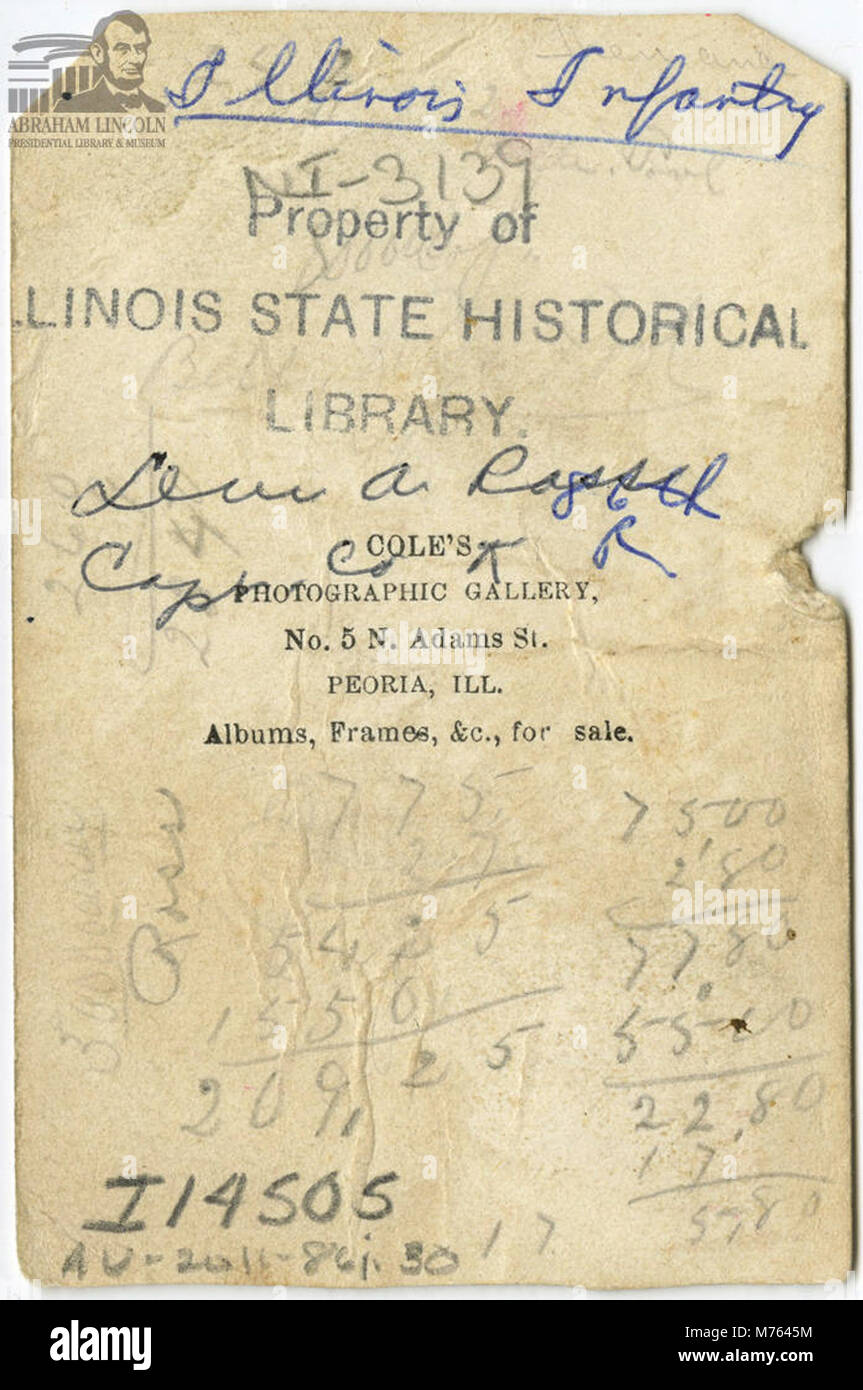 ABRAHAM LINCOLN
PRESIDENTIAL LIBRARY & MUSEUM
Illinois Infantry
NI-3139
Property of
LLINOIS STATE HISTORICAL
LIBRARY.
Levi A. Ross
86 Ill
Capt Co K
R
COLE'S
PHOTOGRAPHIC GALLERY,
No. 5 N. Adams St.
PEORIA, ILL.
Albums, Frames, &c., for sale.
Ross
775
27
5425
1550
209,25
7500
280
7780
5500
22,80
17
57,80
I14505
AV-2011-86j.30
17
alamy
Image ID: M7645M
www.alamy.com